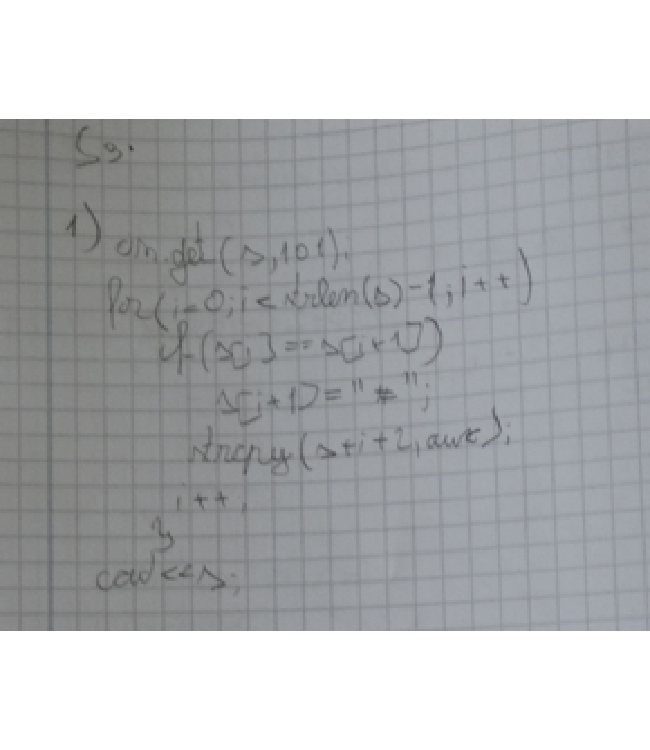 S9.
1) cin.get(s,101);
for(i=0;i<strlen(s)-1;i++)
if(s[i]==s[i+1])
s[i+1]="*";
strcpy(s+i+2,aux);
i++;
}
cout<<s;